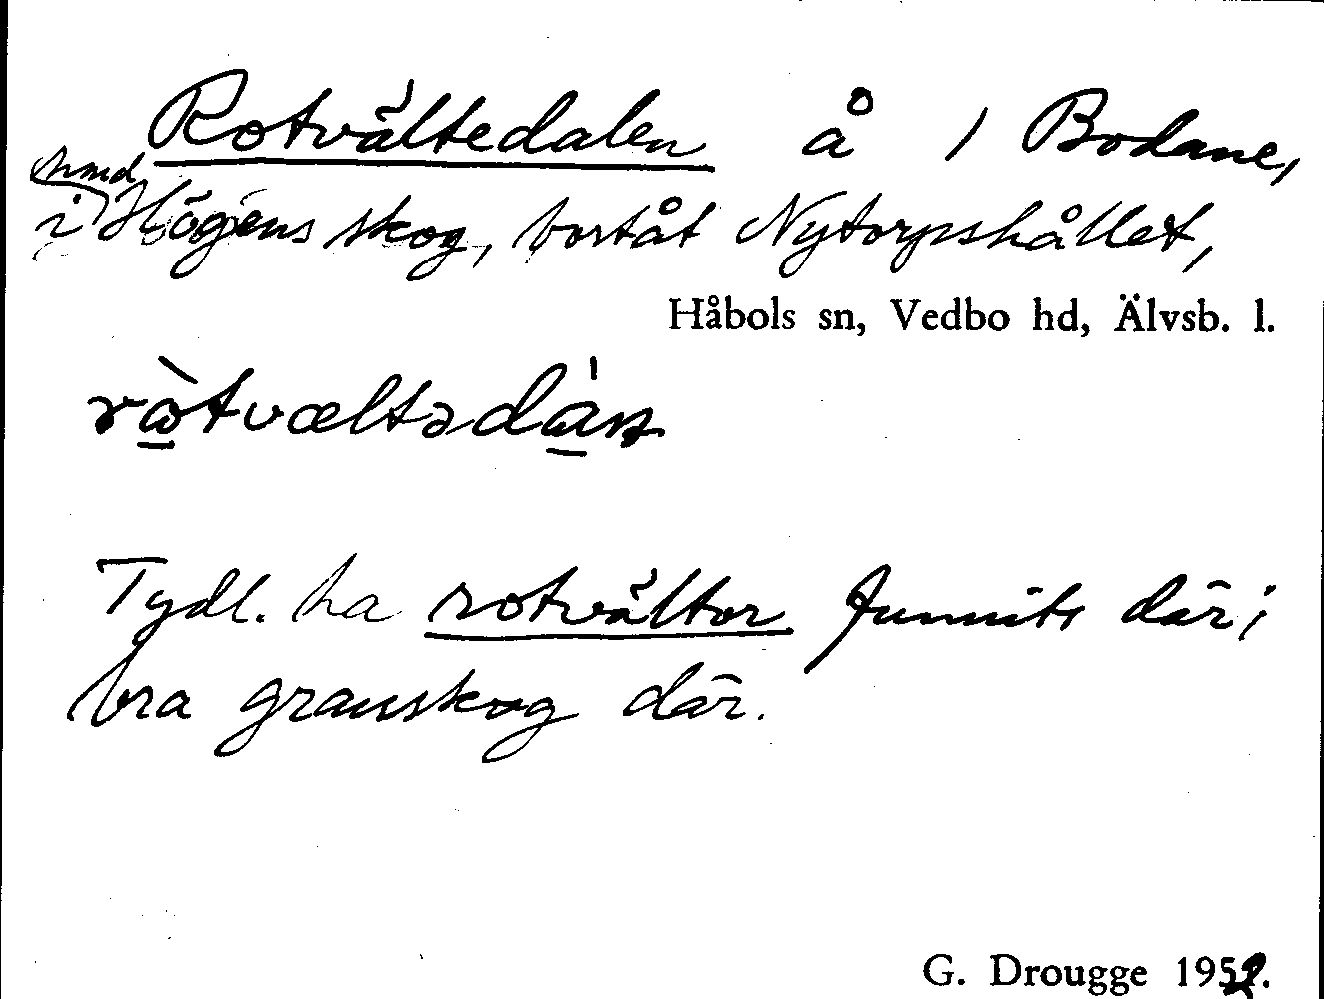 Rotvältedalen å 1 Bodane,
i Högens skog, bortåt Nytorpshållet,
Håbols sn, Vedbo hd, Älvsb. l.
Tydl. ha rotvältor funnits där;
bra granskog där.
G. Drougge 1952.